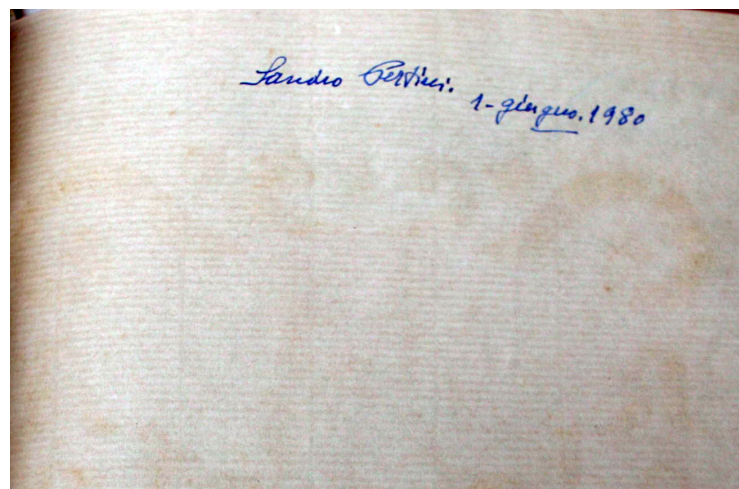 Sandro Pertini.
1-giugno.1980